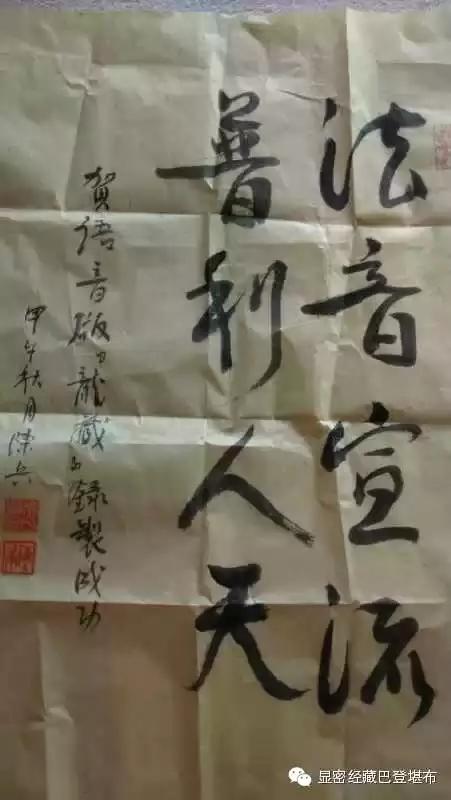 法音宣流
普利人天
贺语音版《龍藏》録製成功
甲午秋月陳兵
显密经藏巴登堪布